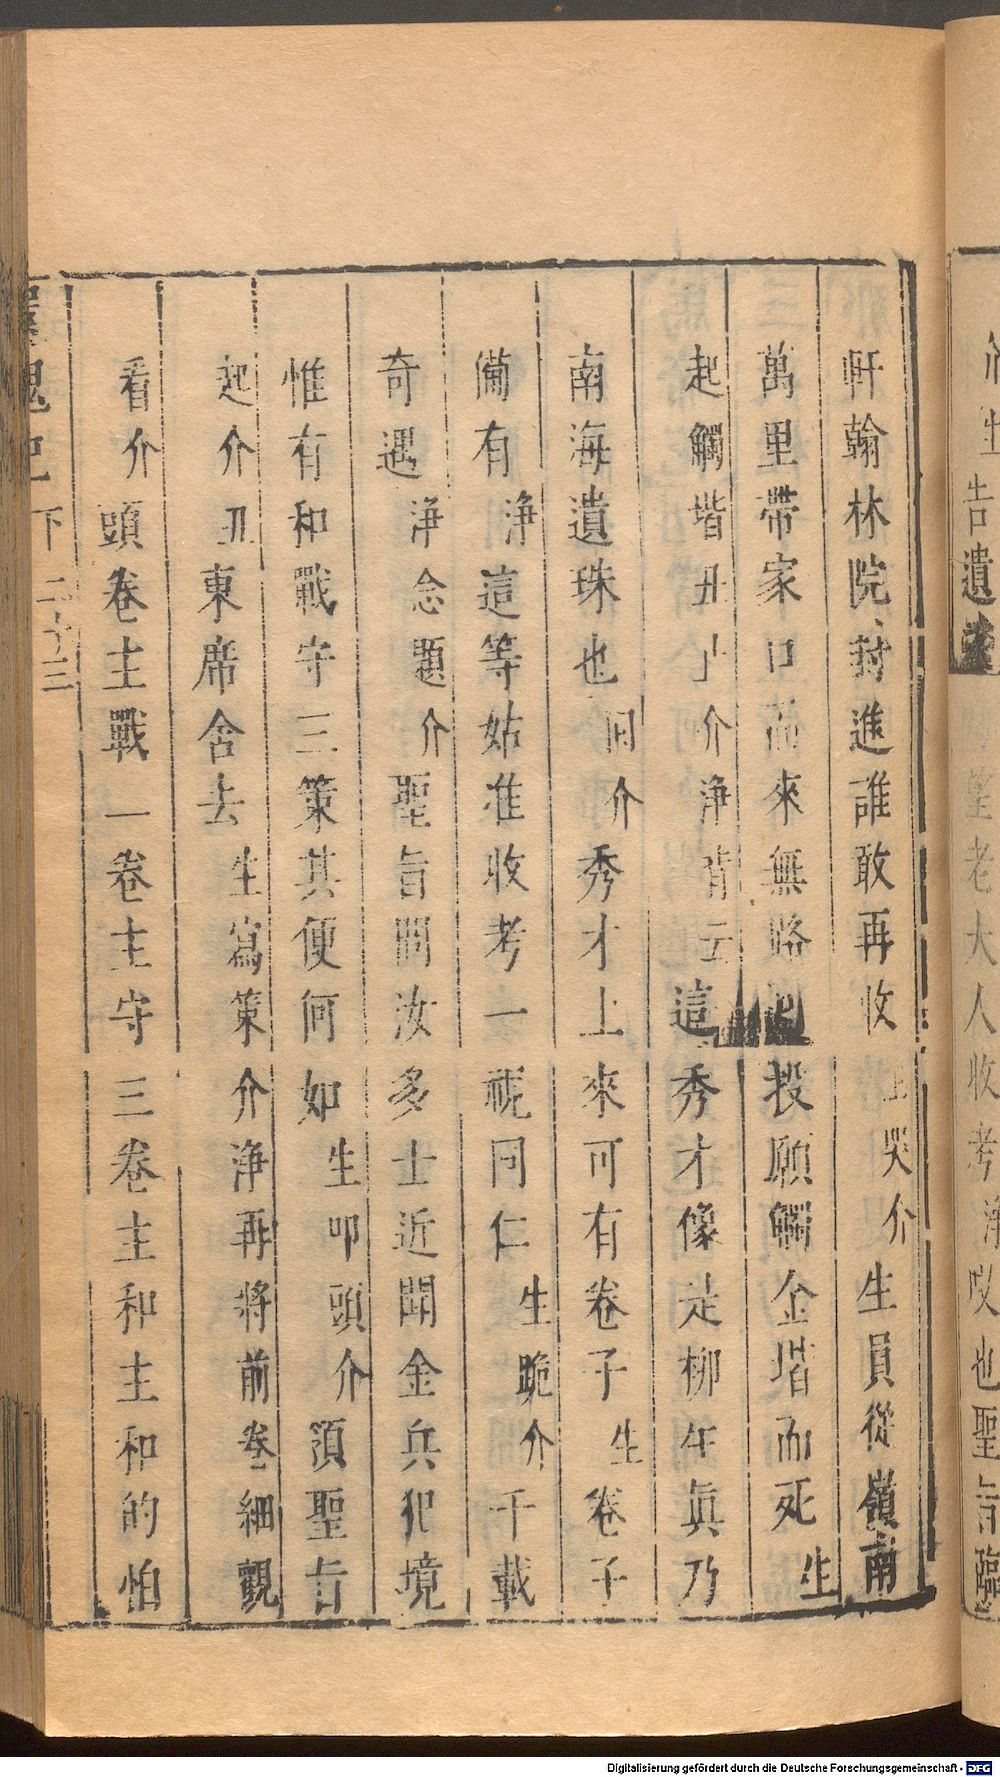 軒翰林院封進誰敢再收 上哭介 生員從嶺南
萬里帶家口而來無路 投願觸金堦而死 生
起觸堦丑止介淨背云 這秀才像是柳生眞乃
南海遺珠也 回介 秀才上來可有卷子 生 卷子
備有 淨 這等姑准收考一視同仁 生跪介 千載
奇遇 淨念題介 聖旨問汝多士近聞金兵犯境
惟有和戰守三策其便何如 生叩頭介 領聖旨
起介丑 東席舍去 生寫策介淨再將前卷細觀
看介 頭卷主戰一卷主守三卷主和主和的怕
還魂記 下 二十三
生 告遺
老大人收考 淨 哎也聖旨臨
Digitalisierung gefördert durch die Deutsche Forschungsgemeinschaft - DFG